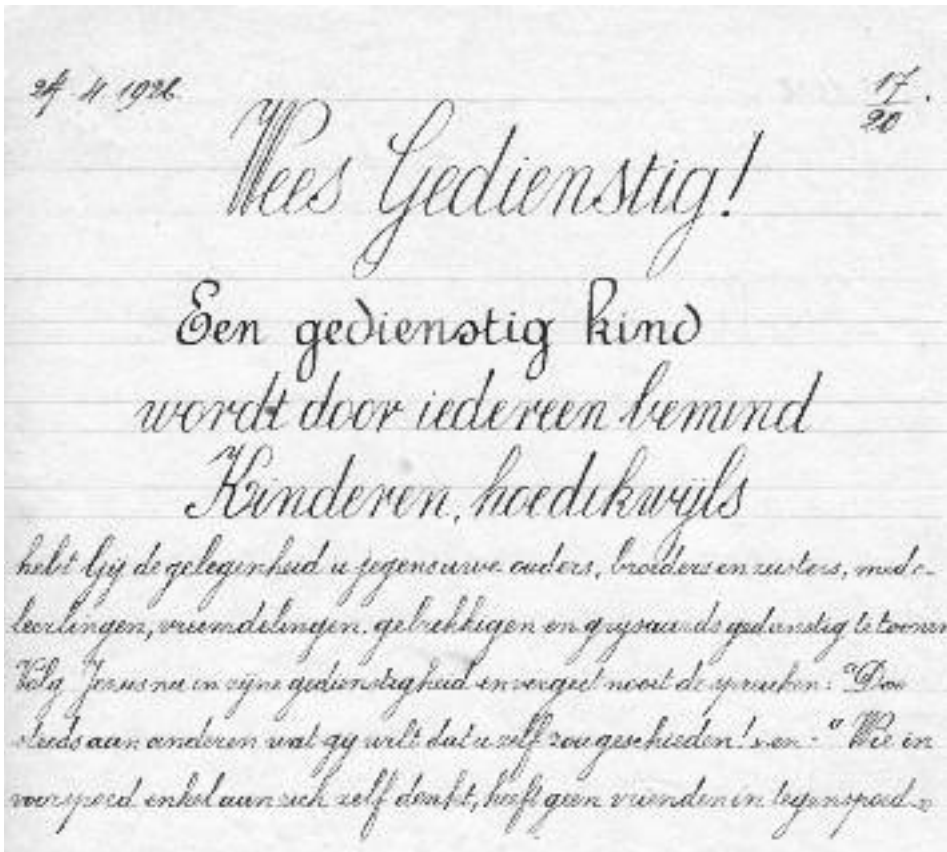 24 4 1926
17
20
Wees Gedienstig!
Een gedienstig kind
wordt door iedereen bemind
Kinderen, hoedikwyls
hebt Gij de gelegenheid u jegens uwe ouders, broeders en zusters, mede-
leerlingen, vreemdelingen, gebrekkigen en grysaards gedienstig te toonen
Volg Jezus na in zyne gedienstigheid en vergeet nooit de spreuken: "Doe
steeds aan anderen wat gy wilt dat u zelf zou geschieden!" en "Wie in
voorspoed enkel aan zich zelf denkt, heeft geen vrienden in tegenspoed"